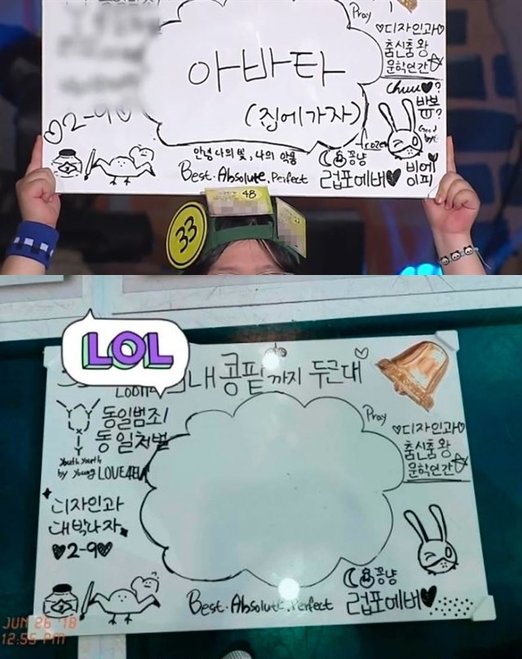 Pray
♡디자인과♡
춤신춤왕
문학연간
아바타
(집에가자)
Chuu♥?
반본
뀨?
♡2-9♡
안녕 나의 빛, 나의 악몽
꽁냥
Best. Absolute. Perfect
럽포에버♥
비에이피
48
33
LOL
내 콩팥까지 두근대
Pray
♡디자인과♡
춤신춤왕
문학연간
동일범죄
동일처벌
Youth Youth
by Young
LOVE4EVA
디자인과
대박나자
♥2-9♥
꽁냥
Best. Absolute. Perfect
럽포에버♥
JUN 26 '18
12:55 PM